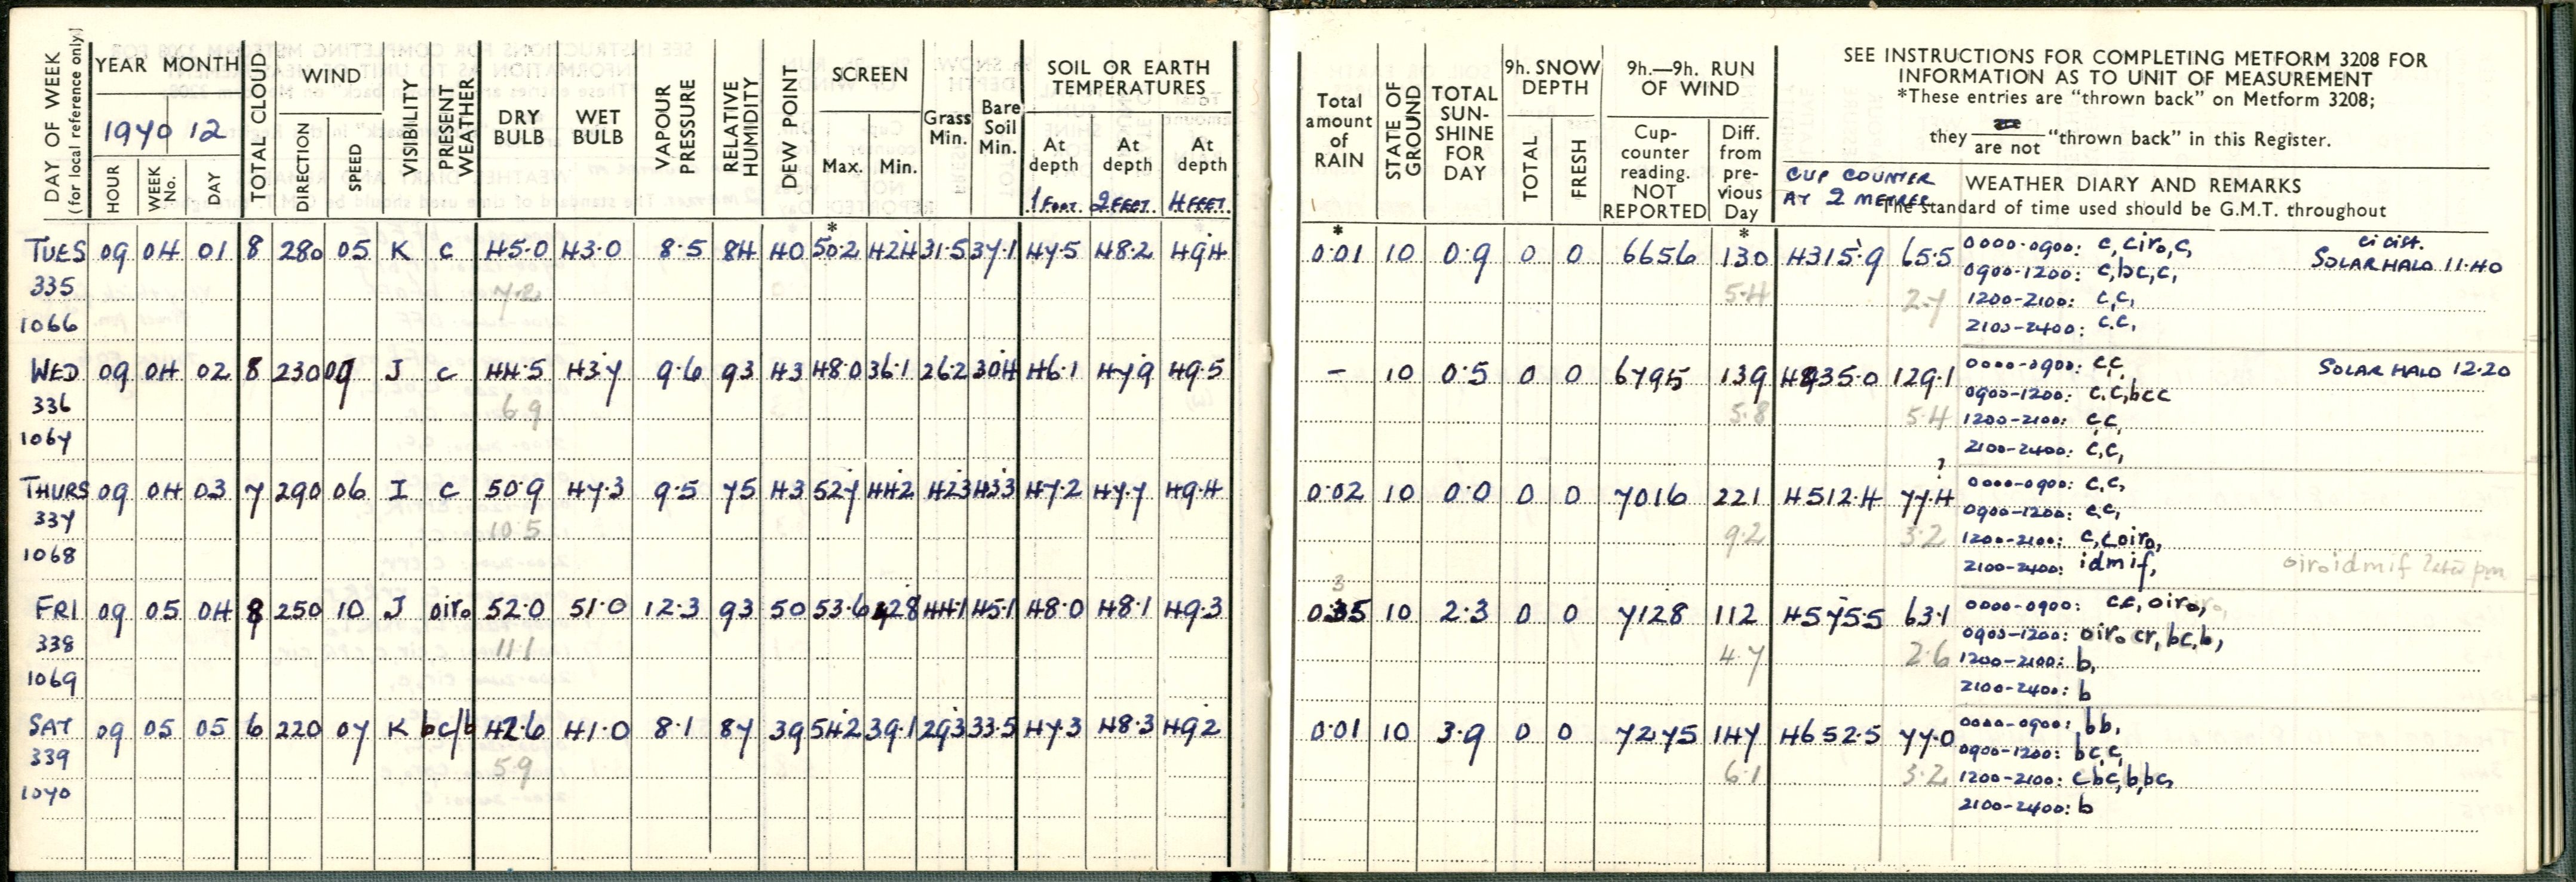 DAY OF WEEK (for local reference only)
YEAR MONTH
1970 12
HOUR WEEK No. DAY
TOTAL CLOUD
WIND
DIRECTION SPEED
VISIBILITY
PRESENT WEATHER
DRY BULB
WET BULB
VAPOUR PRESSURE
RELATIVE HUMIDITY
DEW POINT
SCREEN
Max. Min.
Grass Min.
Bare Soil Min.
SOIL OR EARTH TEMPERATURES
At depth At depth At depth
1 FOOT. 2 FEET. 4 FEET.
Total amount of RAIN
STATE OF GROUND
TOTAL SUN-SHINE FOR DAY
9h. SNOW DEPTH
TOTAL FRESH
9h.—9h. RUN OF WIND
Cup-counter reading. NOT REPORTED
Diff. from pre-vious Day
SEE INSTRUCTIONS FOR COMPLETING METFORM 3208 FOR
INFORMATION AS TO UNIT OF MEASUREMENT
*These entries are "thrown back" on Metform 3208;
they are not "thrown back" in this Register.
CUP COUNTER
AT 2 METRES
WEATHER DIARY AND REMARKS
The standard of time used should be G.M.T. throughout
* * *
TUES 09 04 01 8 280 05 K c 45.0 43.0 8.5 84 40 50.2 42.4 31.5 37.1 47.5 48.2 49.4 0.01 10 0.9 0 0 6656 130 4315.9 65.5 0000-0900: c,ciro,c,
ci cist.
SOLAR HALO 11.40
0900-1200: c,bc,c,
335 7.2 5.4 2.7 1200-2100: c,c,
1066 2100-2400: c.c,
WED 09 04 02 8 230 09 J c 44.5 43.7 9.6 93 43 48.0 36.1 26.2 30.4 46.1 47.9 49.5 - 10 0.5 0 0 6795 139 4435.0 129.1 0000-0900: c,c, SOLAR HALO 12.20
0900-1200: c.c,bcc
336 6.9 5.8 5.4 1200-2100: c,c,
1067 2100-2400: c,c,
?
THURS 09 04 03 7 290 06 I c 50.9 47.3 9.5 75 43 52.7 44.2 42.3 43.3 47.2 47.7 49.4 0.02 10 0.0 0 0 7016 221 4512.4 77.4 0000-0900: c,c,
0900-1200: c,c,
337 10.5 9.2 3.2 1200-2100: c,coiro,
1068 2100-2400: idmif, oiroidmif later pm
3
FRI 09 05 04 8 250 10 J oiro 52.0 51.0 12.3 93 50 53.6 42.8 44.1 45.1 48.0 48.1 49.3 0.35 10 2.3 0 0 7128 112 4575.5 63.1 0000-0900: cc,oiro,
0900-1200: oiro cr, bc,b,
338 11.1 4.7 2.6 1200-2100: b,
1069 2100-2400: b
SAT 09 05 05 6 220 07 K bc/b 42.6 41.0 8.1 87 39 54.2 39.1 29.3 33.5 47.3 48.3 49.2 0.01 10 3.9 0 0 7275 147 4652.5 77.0 0000-0900: bb,
0900-1200: bc,c,
339 5.9 6.1 3.2 1200-2100: cbc,b,bc,
1070 2100-2400: b